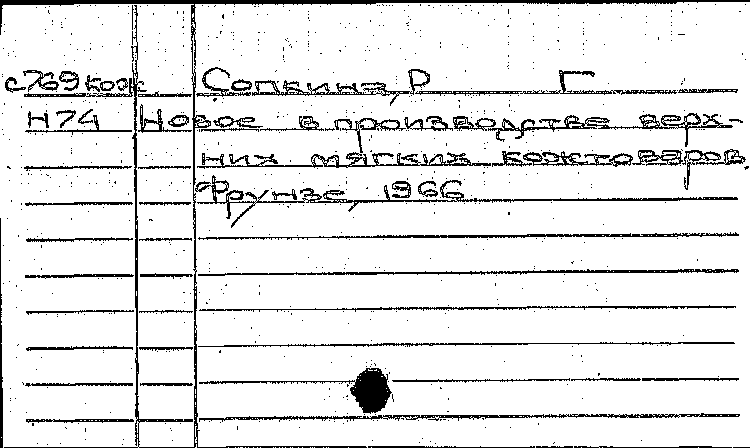 с769кож Сопкина, Р Г
Н74 Новое в производстве верх-
них мягких кожтоваров.
Фрунзе, 1966